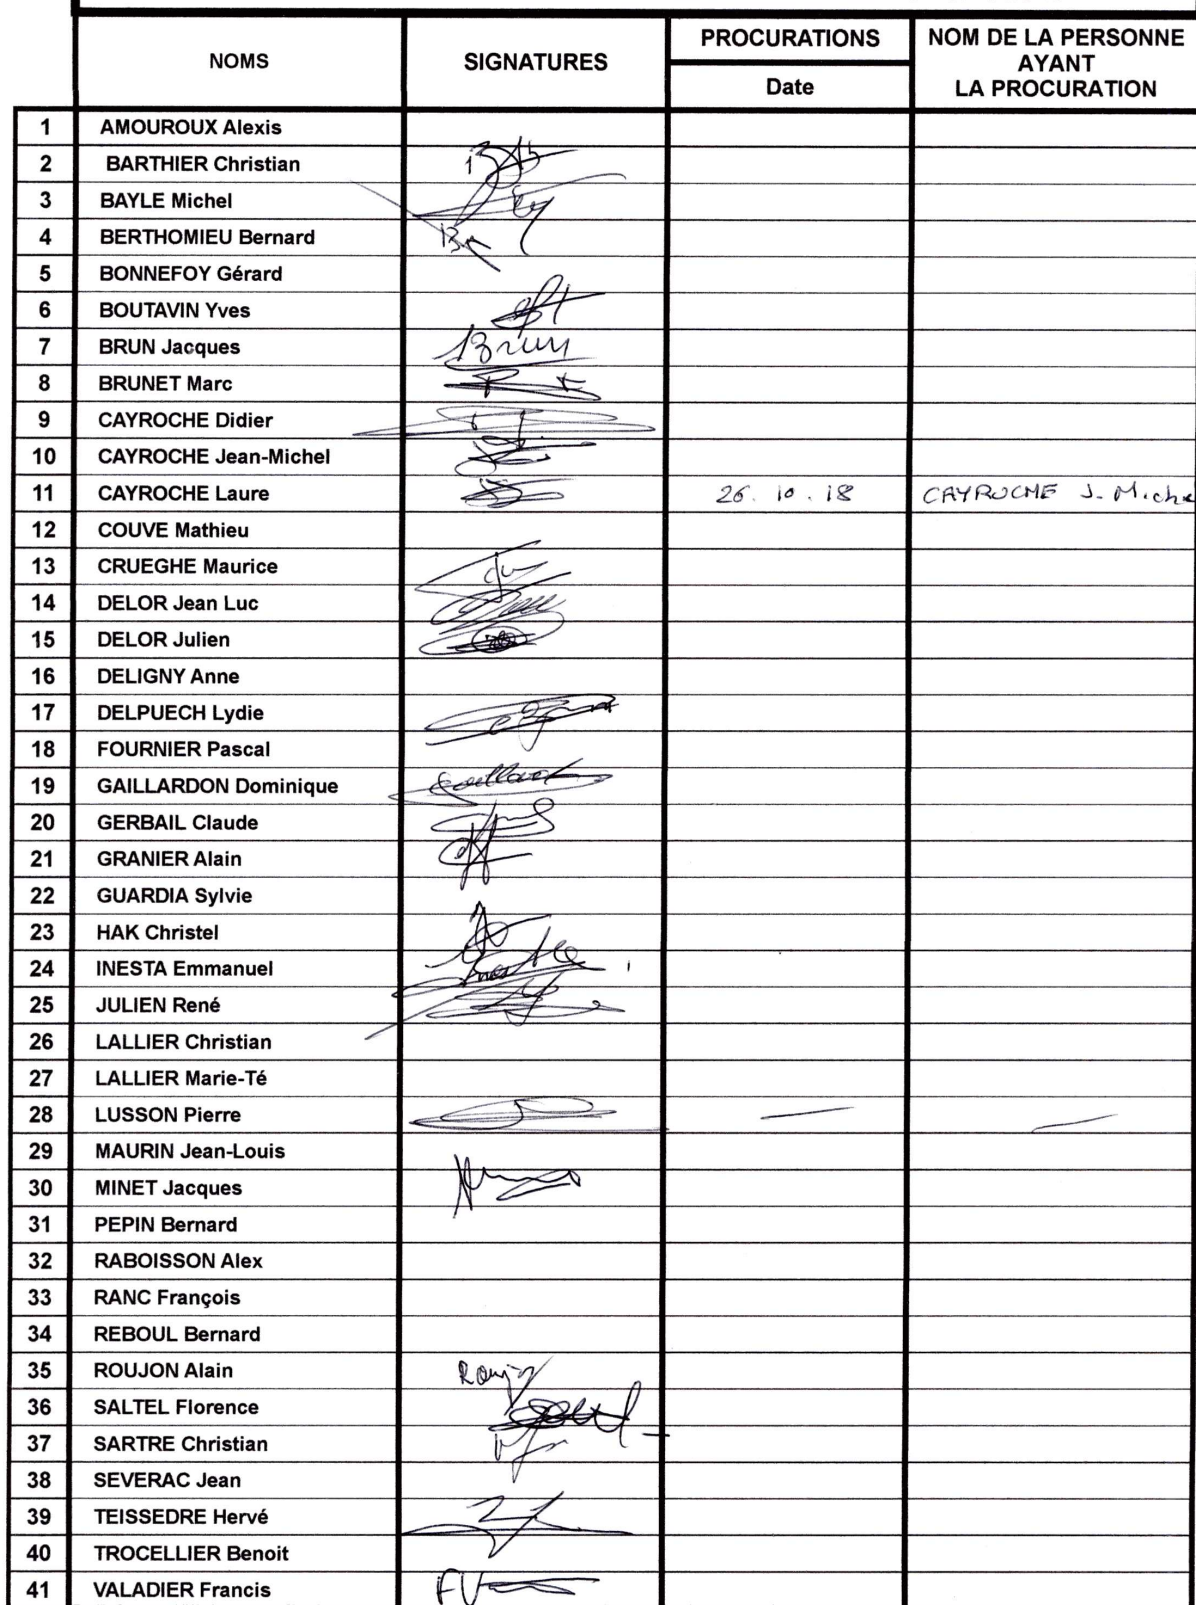 NOMS SIGNATURES PROCURATIONS NOM DE LA PERSONNE
AYANT
Date LA PROCURATION
1 AMOUROUX Alexis
2 BARTHIER Christian
3 BAYLE Michel
4 BERTHOMIEU Bernard
5 BONNEFOY Gérard
6 BOUTAVIN Yves
7 BRUN Jacques Brun
8 BRUNET Marc
9 CAYROCHE Didier
10 CAYROCHE Jean-Michel
11 CAYROCHE Laure 26. 10. 18 CAYROCHE J. Miche
12 COUVE Mathieu
13 CRUEGHE Maurice
14 DELOR Jean Luc
15 DELOR Julien
16 DELIGNY Anne
17 DELPUECH Lydie
18 FOURNIER Pascal
19 GAILLARDON Dominique
20 GERBAIL Claude
21 GRANIER Alain
22 GUARDIA Sylvie
23 HAK Christel
24 INESTA Emmanuel
25 JULIEN René
26 LALLIER Christian
27 LALLIER Marie-Té
28 LUSSON Pierre
29 MAURIN Jean-Louis
30 MINET Jacques
31 PEPIN Bernard
32 RABOISSON Alex
33 RANC François
34 REBOUL Bernard
35 ROUJON Alain
36 SALTEL Florence
37 SARTRE Christian
38 SEVERAC Jean
39 TEISSEDRE Hervé
40 TROCELLIER Benoit
41 VALADIER Francis